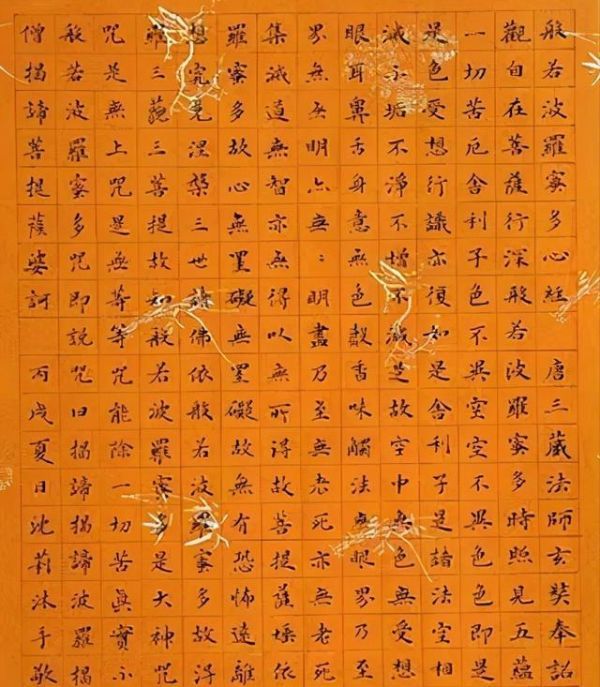 般若波羅蜜多心経 唐三藏法師玄奘奉詔
觀自在菩薩行深般若波羅蜜多時照見五蘊
一切苦厄舍利子色不異空空不異色色即是
是色受想行識亦復如是舍利子是諸法空相
滅不垢不淨不增不減是故空中無色無受想
眼耳鼻舌身意無色聲香味觸法無眼界乃至
界無無明亦無〻明盡乃至無老死亦無老死
集滅道無智亦無得以無所得故菩提薩埵依
羅蜜多故心無罣礙無罣礙故無有恐怖遠離
想究竟涅槃三世諸佛依般若波羅蜜多故得
羅三藐三菩提故知般若波羅蜜多是大神咒
咒是無上咒是無等等咒能除一切苦真實不
般若波羅蜜多咒即說咒曰揭諦揭諦波羅揭
僧揭諦菩提薩婆訶 丙戌夏日沈莉沐手敬